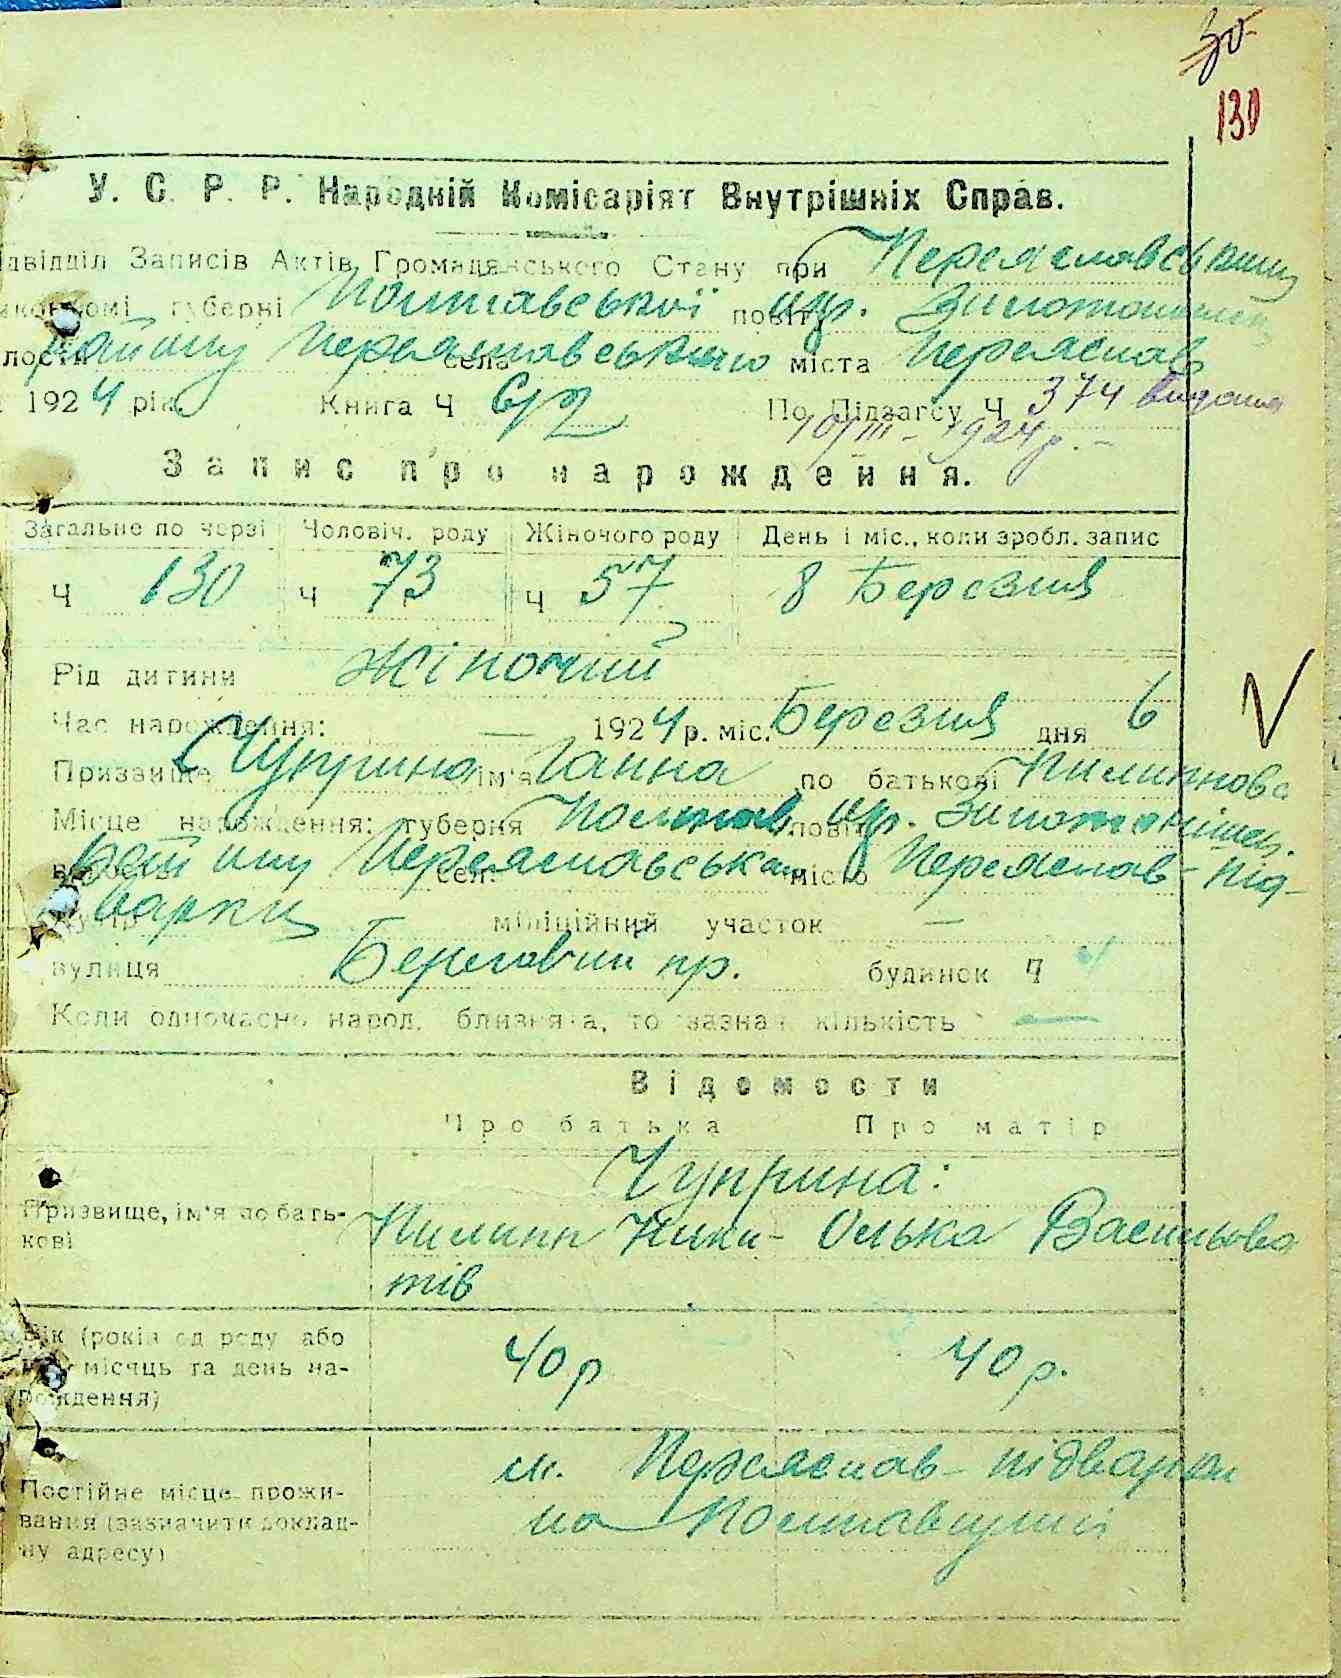 30
130
У. С. Р. Р. Народній Комісаріят Внутрішніх Справ.
ідвідділ Записів Актів Громадянського Стану при Переяславським
иконкомі губерні Полтавської повіту окр. Золотоніськ
лости району Переяславського села міста Переяслав
192 4 рік Книга Ч По Підзагсу Ч 374 видана
10/III - 1924 р. -
Запис про нарождення.
Загальне по черзі Чоловіч. роду Жіночого роду День і міс., коли зробл. запис
Ч 130 Ч 73 Ч 57 8 Березня
Рід дитини жіночий
Час нарождення: — 1924 р. міс. Березня дня 6
Призвище Чуприна ім'я Ганна по батькові Пилипнова
Місце нарождення: губерня Полтав. повіт окр. Золотонішськ.
волость району Переяславськ село місто Переяслав - під-
варки міліційний участок —
вулиця Береговий пр. будинок Ч
Коли одночасно народ. близнята, то зазнач. кількість —
Відомости
Про батька Про матір
Чуприна:
Призвище, ім'я по бать- Пилип Ники- Олька Васильова
кові тів
Вік (років од роду або 40 р 40 р.
рік, місяць та день на-
рождення)
Постійне місце прожи- м. Переяслав - підварки
вання (зазначити доклад- на Полтавщині
ну адресу)